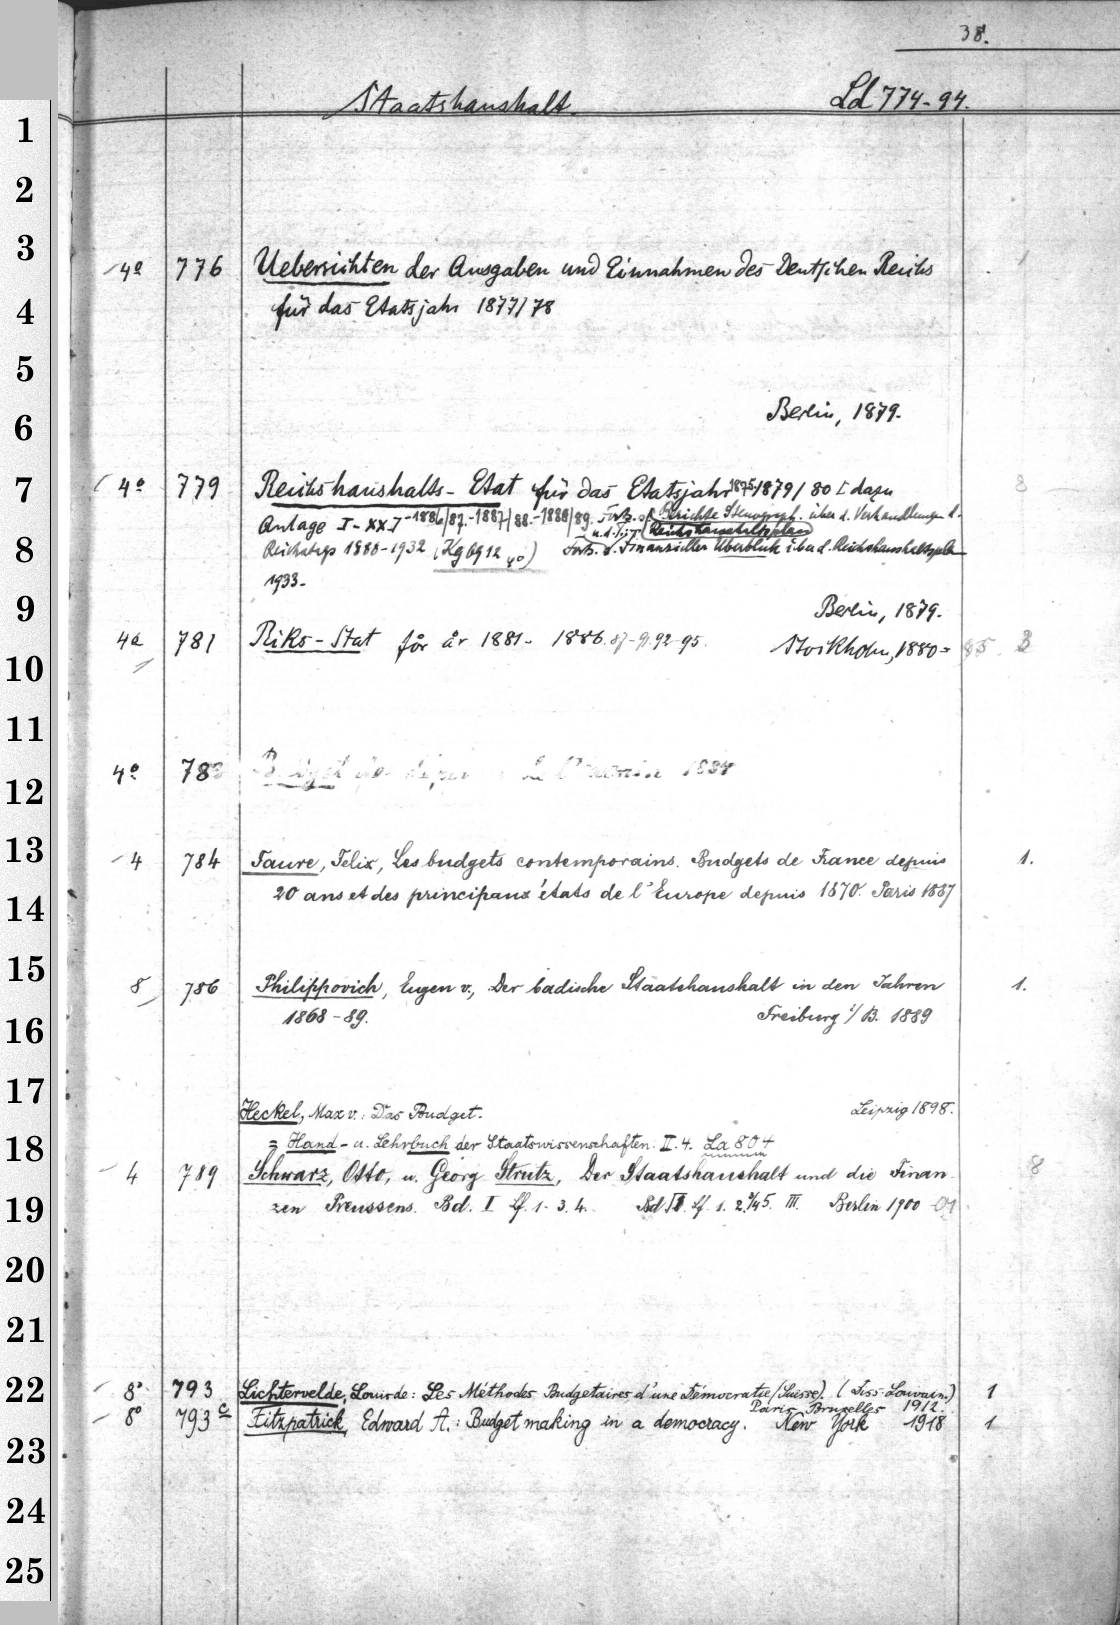 38.
Staatshaushalt. Ld 774-94.
1
2
3
4° 776 Uebersichten der Ausgaben und Einnahmen des Deutschen Reichs 1
4
für das Etatsjahr 1877/78
5
6
Berlin, 1879.
7
4° 779 Reichshaushalts-Etat für das Etatsjahr 1875/1879/80 I dazu 3
Anlage I-XXI -1886/87.-1887/88.-1888/89. Forts. s. Berichte Stenograph. über d. Verhandlungen d.
u. d. Tit. Reichshaushaltsplan
8
Reichstags 1880-1932 (Kg 6912 4°) Forts. s. Finanzieller Überblick über d. Reichshaushaltsplan
1933.
9
Berlin, 1879.
4° 781 Riks-Stat för år 1881- 1886. 87-91. 92-95. Stockholm, 1880- 95. 3
10
11
4° 783 Budget des 1884
12
13
4 784 Faure, Felix, Les budgets contemporains. Budgets de France depuis 1.
20 ans et des principaux états de l'Europe depuis 1870. Paris 1887
14
15
8 786 Philippovich, Eugen v., Der badische Staatshaushalt in den Jahren 1.
1868-89. Freiburg i/B. 1889
16
17
Heckel, Max v.: Das Budget. Leipzig 1898.
18
= Hand- u. Lehrbuch der Staatswissenschaften. II. 4. La 804
4 789 Schwarz, Otto, u. Georg Strutz, Der Staatshaushalt und die Finan- 8
19
zen Preussens. Bd. I Lf. 1. 3. 4. Bd II. Lf. 1. 2. 3/4 5. III. Berlin 1900-04
20
21
22
8° 793 Lichtervelde, Louis de: Les Méthodes Budgétaires d'une Démocratie (Suisse). (Diss. Louvain.) 1
Paris. Bruxelles 1912.
8° 793c Fitzpatrick, Edward A.: Budget making in a democracy. New York 1918 1
23
24
25